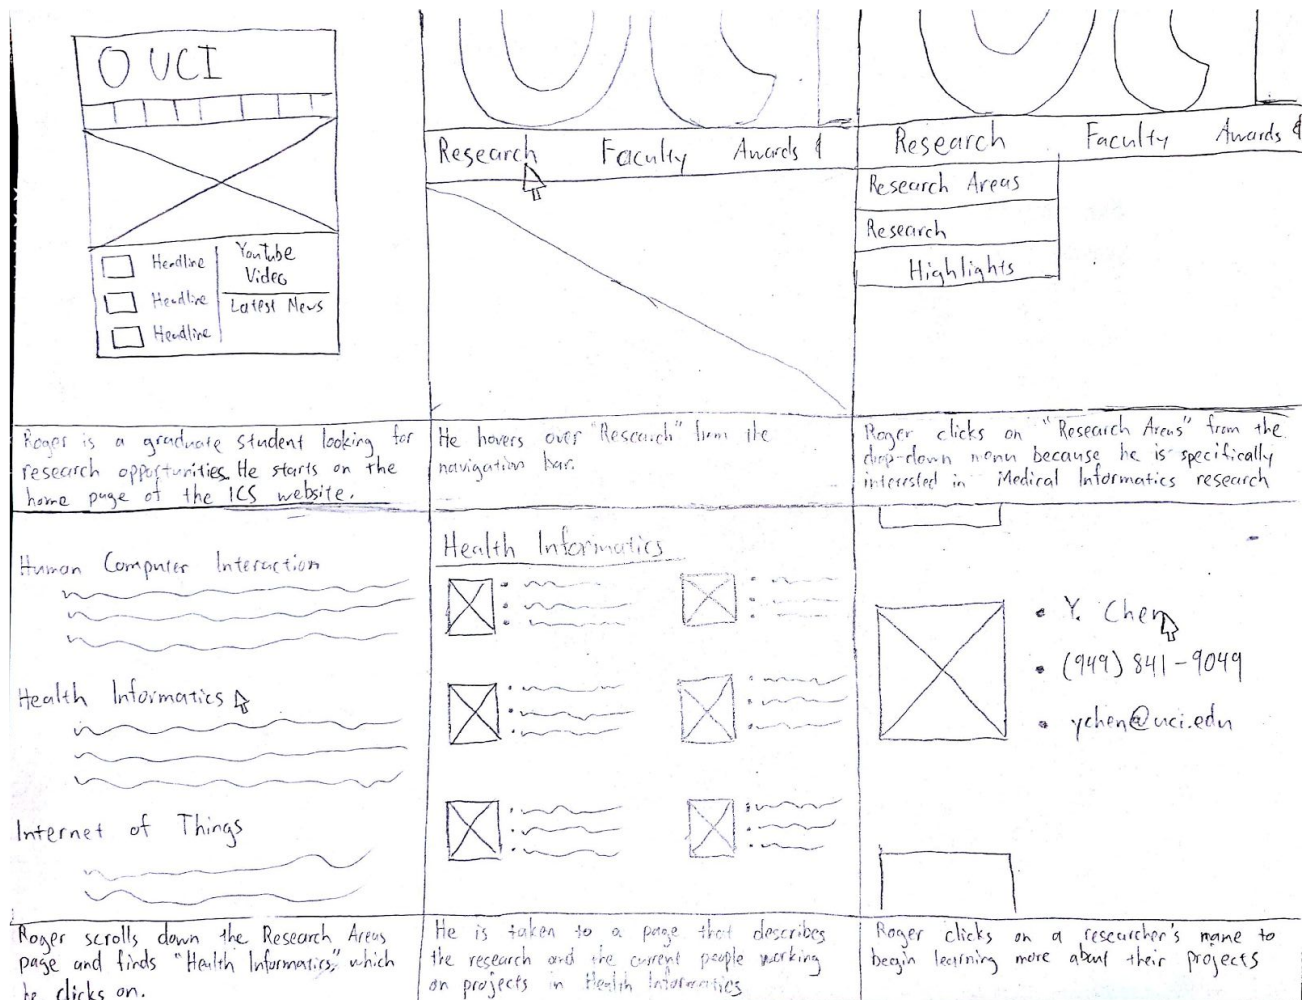 O UCI
Headline
Headline
Headline
YouTube
Video
Latest News
Roger is a graduate student looking for
research opportunities. He starts on the
home page of the ICS website.
Research Faculty Awards &
He hovers over "Research" from the
navigation bar.
Research Faculty Awards &
Research Areas
Research
Highlights
Roger clicks on "Research Areas" from the
drop-down menu because he is specifically
interested in Medical Informatics research
Human Computer Interaction
Health Informatics
Internet of Things
Roger scrolls down the Research Areas
page and finds "Health Informatics," which
he clicks on.
Health Informatics
He is taken to a page that describes
the research and the current people working
on projects in Health Informatics
Y. Chen
(949) 841-9049
ychen@uci.edu
Roger clicks on a researcher's name to
begin learning more about their projects